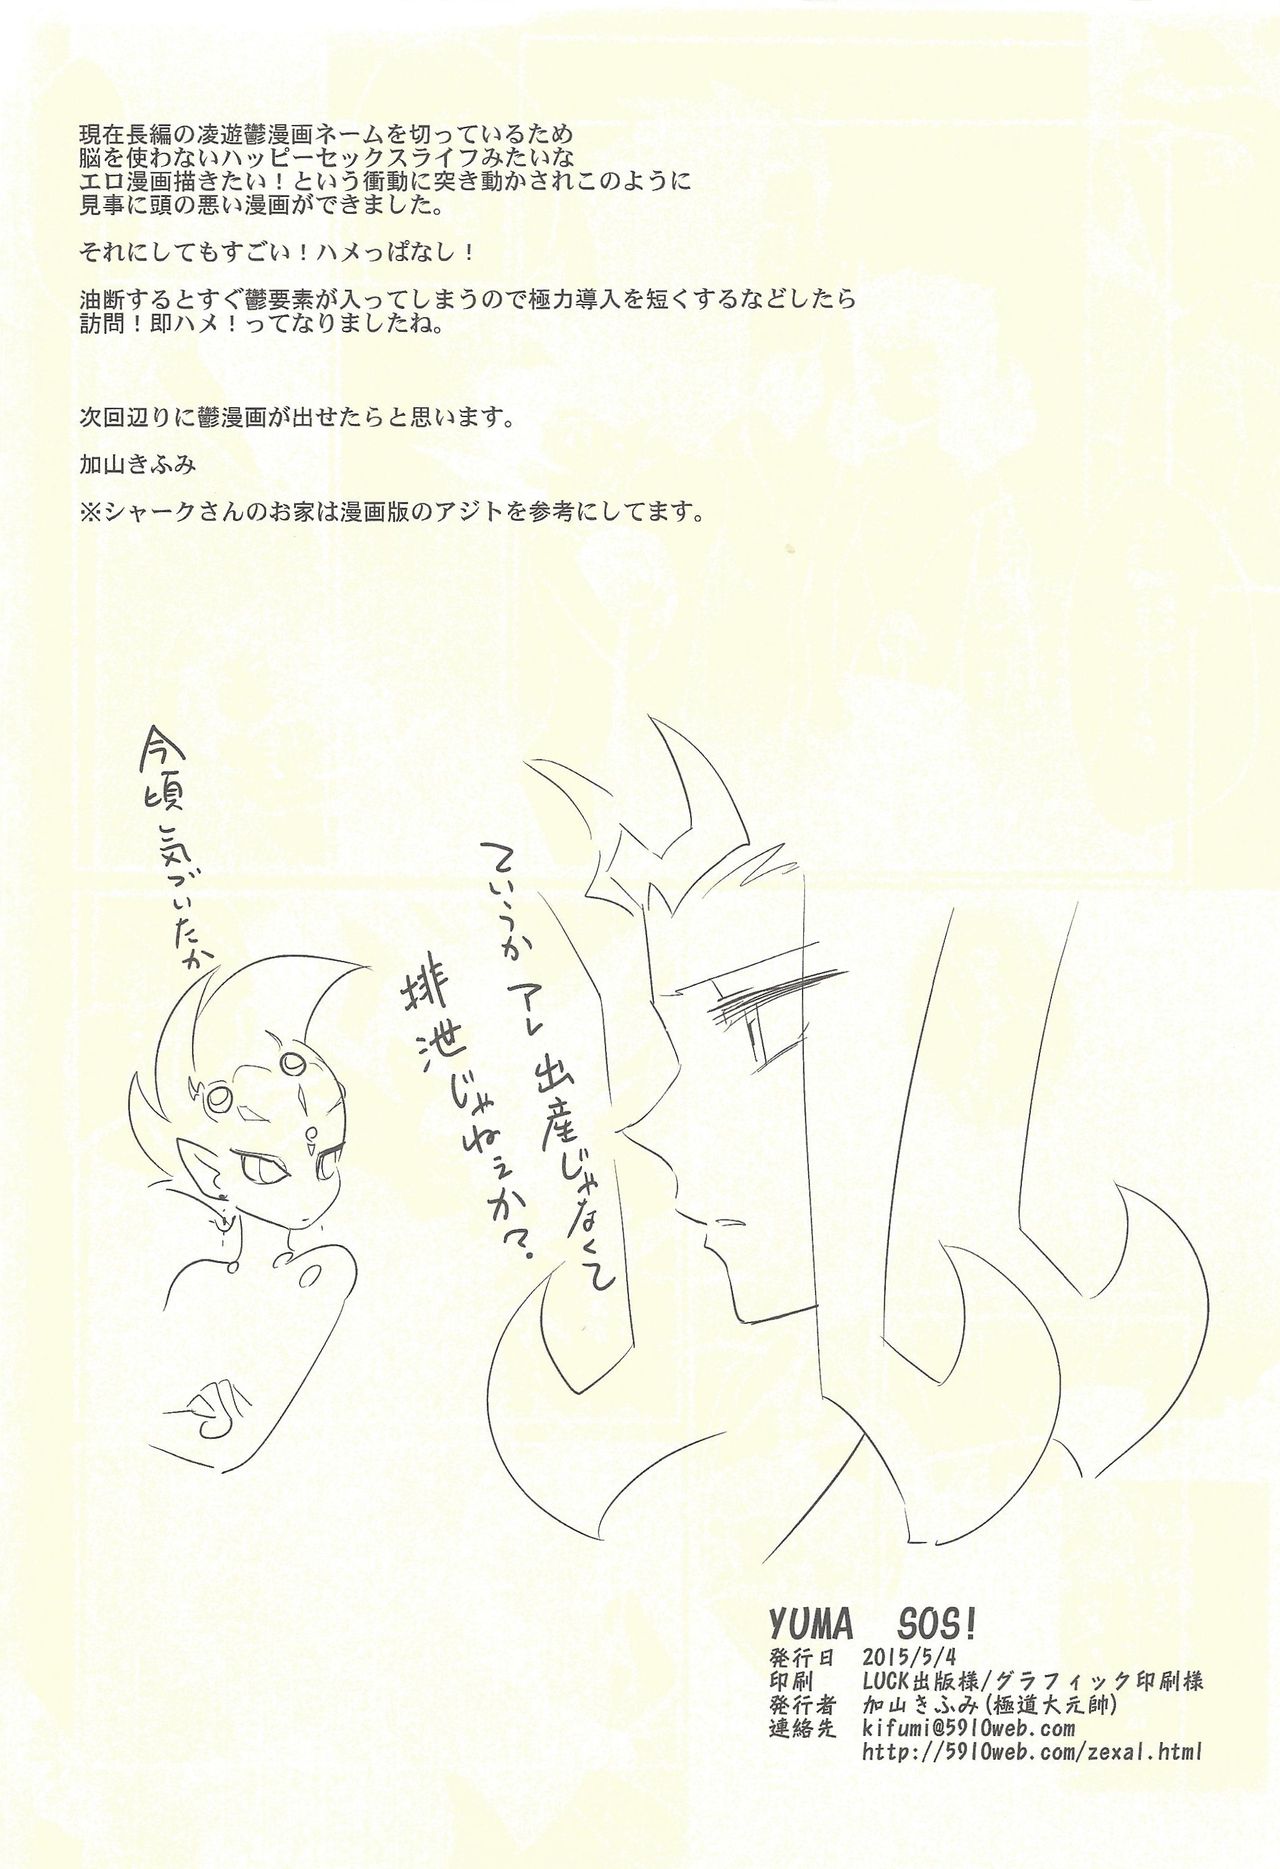 現在長編の凌遊鬱漫画ネームを切っているため
脳を使わないハッピーセックスライフみたいな
エロ漫画描きたい！という衝動に突き動かされこのように
見事に頭の悪い漫画ができました。
それにしてもすごい！ハメっぱなし！
油断するとすぐ鬱要素が入ってしまうので極力導入を短くするなどしたら
訪問！即ハメ！ってなりましたね。
次回辺りに鬱漫画が出せたらと思います。
加山きふみ
※シャークさんのお家は漫画版のアジトを参考にしてます。
ていうかアレ出産じゃなくて
排泄じゃねぇか？
今頃気づいたか
YUMA SOS!
発行日 2015/5/4
印刷 LUCK出版様/グラフィック印刷様
発行者 加山きふみ(極道大元帥)
連絡先 kifumi@5910web.com
http://5910web.com/zexal.html